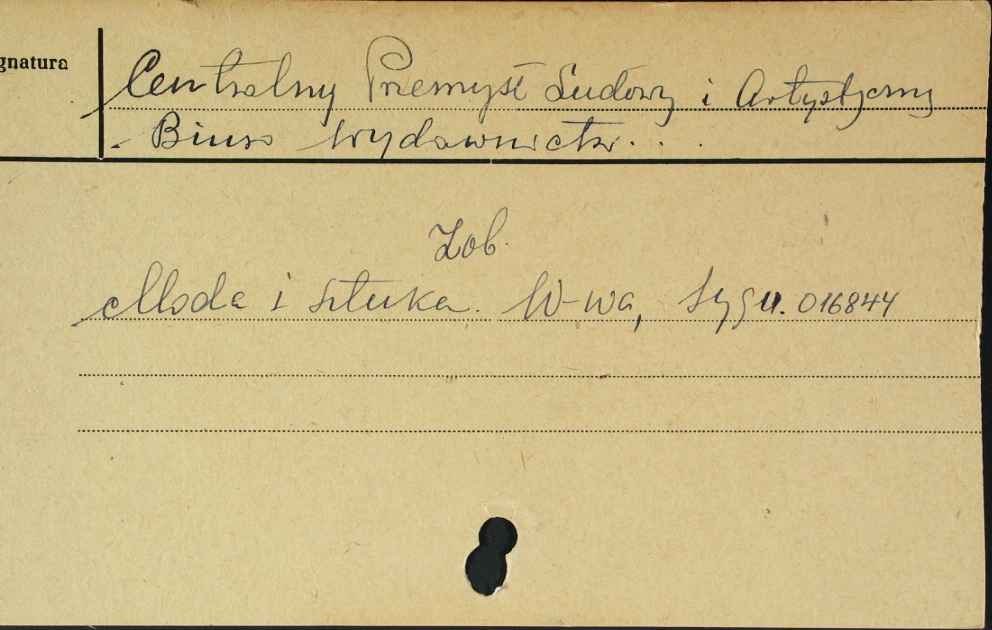 gnatura
Centralny Przemysł Ludowy i Artystyczny
- Biuro Wydawnictw . . .
Zob.
Moda i sztuka. W-wa, Sygn. 016844